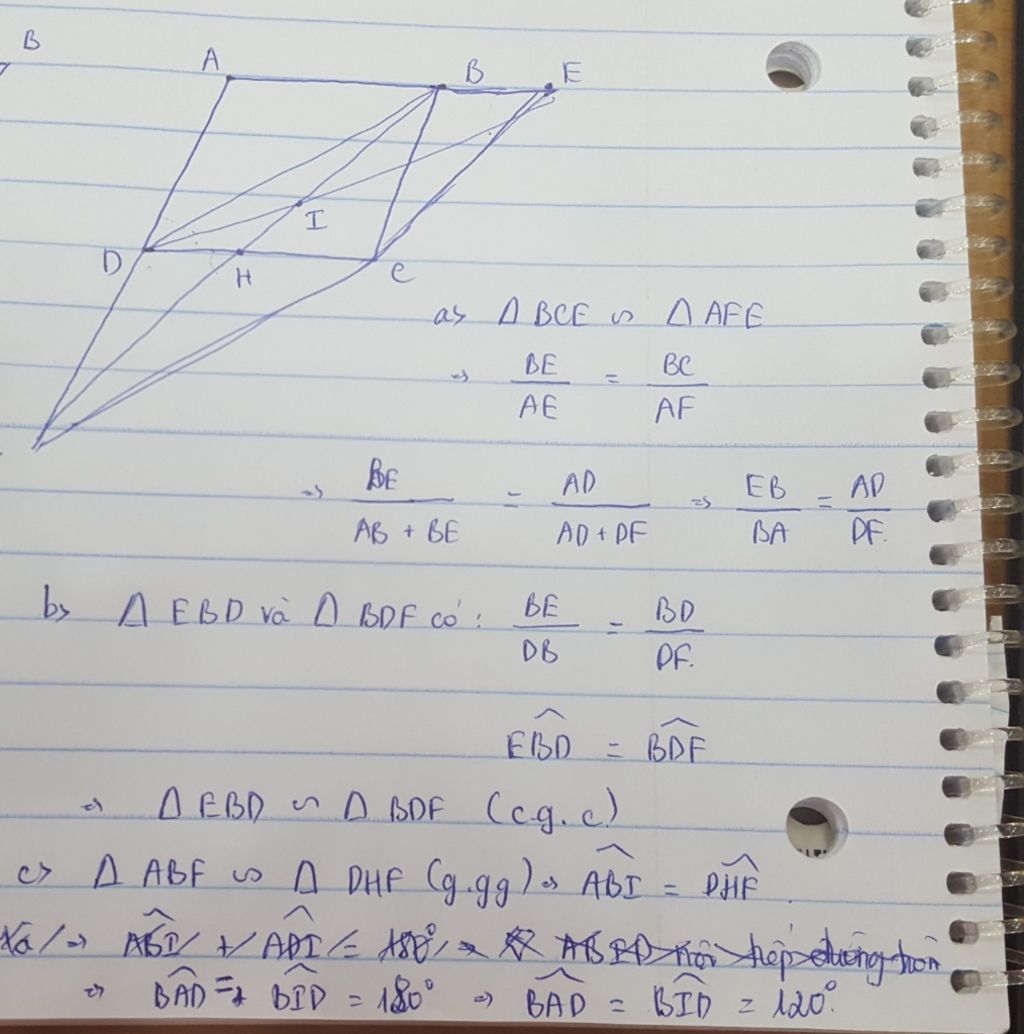 B
A B E
I
D H C
a> Δ BCE ∽ Δ AFE
=> BE/AE = BC/AF
=> BE/(AB + BE) = AD/(AD + DF) => EB/BA = AD/DF.
b> Δ EBD và Δ BDF có: BE/DB = BD/DF.
\widehat{EBD} = \widehat{BDF}
=> Δ EBD ∽ Δ BDF (c.g.c)
c> Δ ABF ∽ Δ DHF (g.gg) => \widehat{ABI} = \widehat{DHF}.
=> \widehat{ABI} + \widehat{ADI} = 180°
=> \widehat{BAD} = \widehat{BID} = 180° => \widehat{BAD} = \widehat{BID} = 120°.